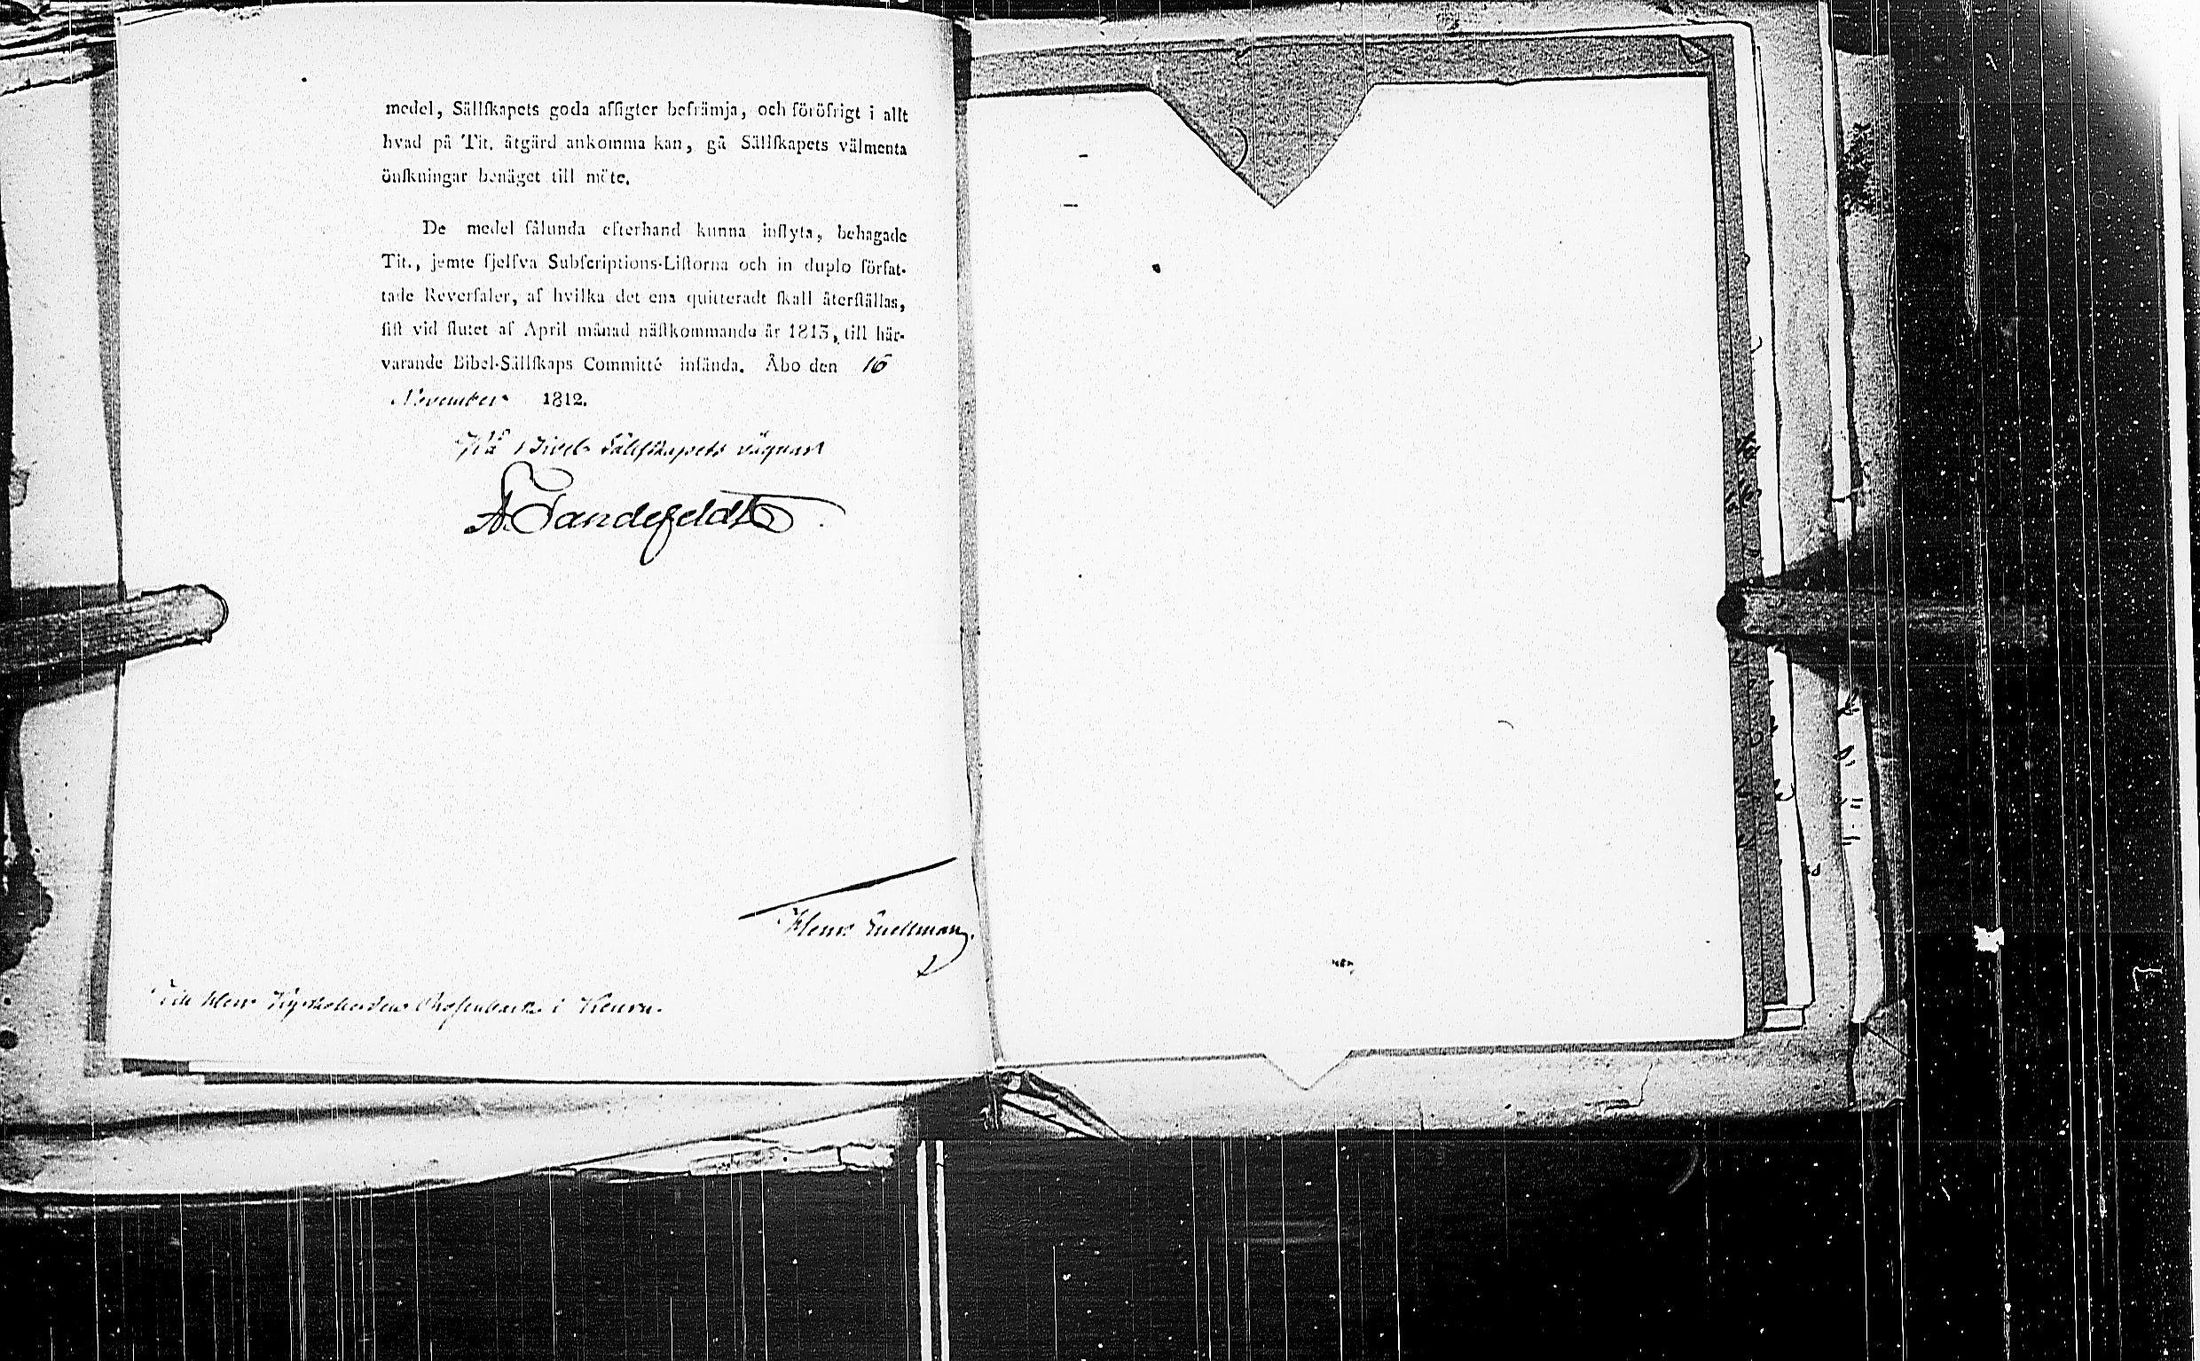 medel, Sällſkapets goda afſigter befrämja, och föröfrigt i allt
hvad på Tit. åtgärd ankomma kan, gå Sällſkapets välmenta
önſkningar benäget till möte.
De medel ſålunda efterhand kunna inflyta, behagade
Tit., jemte ſjelfva Subſcriptions-Liſtorna och in duplo förfat-
tade Reverſaler, af hvilka det ena quitteradt ſkall återſtällas,
ſiſt vid ſlutet af April månad näſtkommande år 1813, till här-
varande Bibel-Sällſkaps Committé inſända. Åbo den 16
November 1812.
På Bibel Sällſkapets vägnar
A. Tandefeldt.
Henr. Snellman.
Till Herr Kyrkoherden i Keuru.